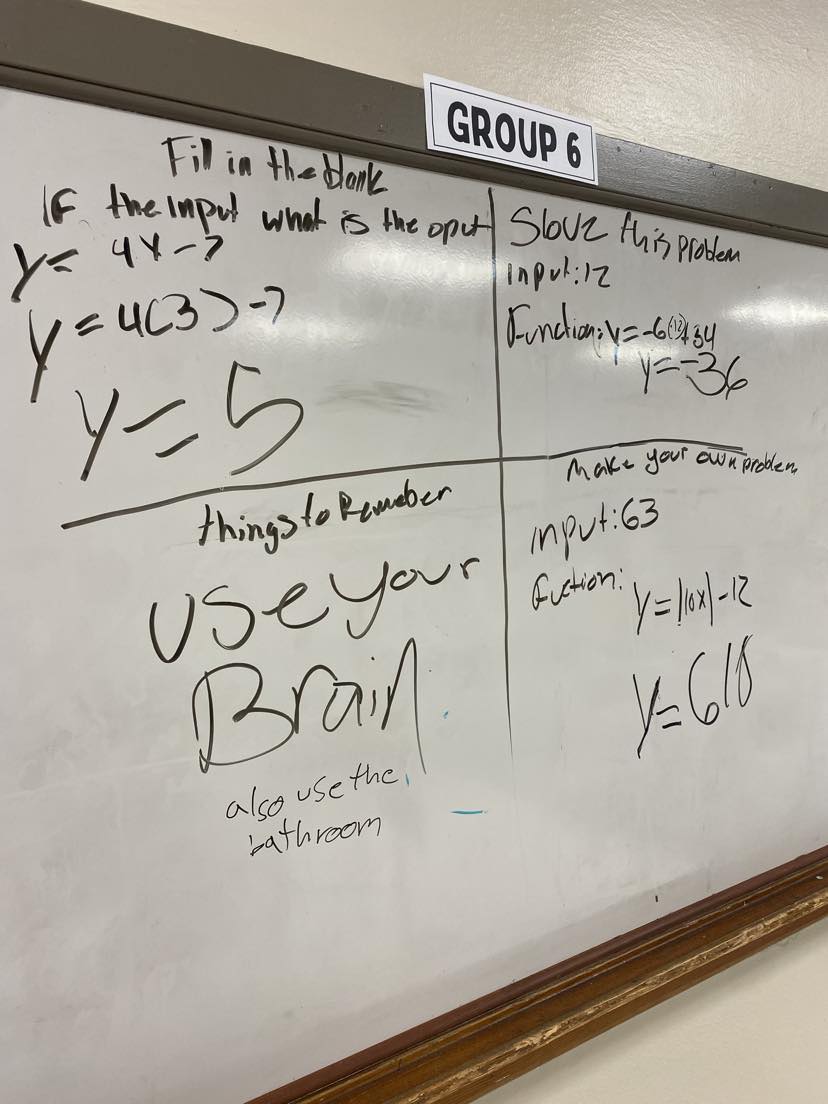 GROUP 6
Fill in the blank
IF the Input what is the oput
y= 4x-7
y=4(3)-7
y=5
Slove this problem
Input:12
Function: y=-6(12)+34
y=-36
things to Remeber
use your
Brain
also use the
bathroom
make your own problem
input:63
fuction:
y=|10x|-12
y=618